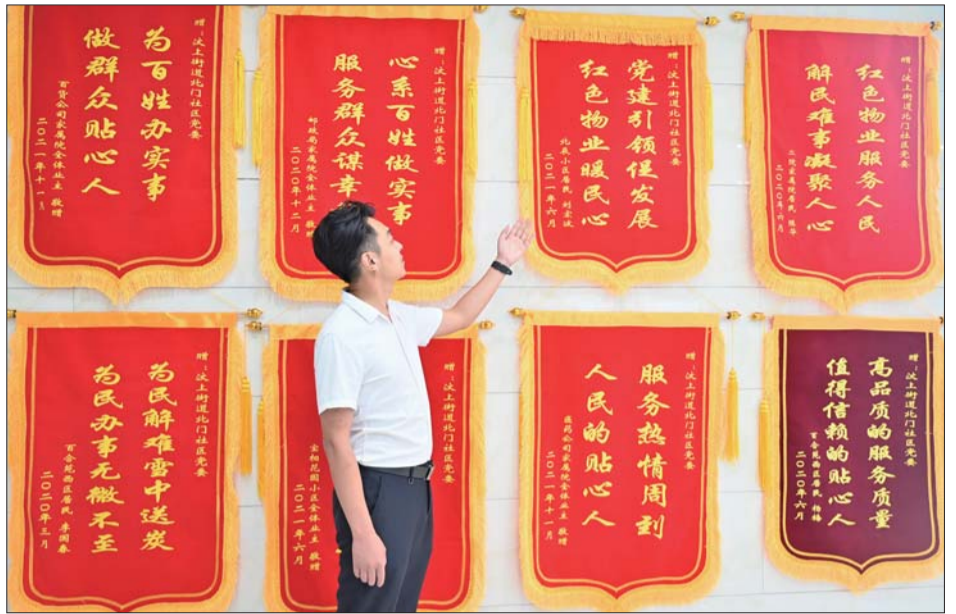 赠：汶上街道北门社区党委
为百姓办实事
做群众贴心人
百货公司家属院全体业主 敬赠
二〇二一年十一
赠：汶上街道北门社区党委
心系百姓做实事
服务群众谋幸
邮政局家属院全体业主 敬
二〇二〇年十二月
赠：汶上街道北门社区党委
党建引领促发展
红色物业暖民心
北辰小区居民
二〇二一年六月
赠：汶上街道北门社区党委
红色物业服务人民
解民难事凝聚人心
二院家属院居民 陈华
二〇二〇年六月
赠：汶上街道北门社区党委
为民解难雪中送炭
为民办事无微不至
百合苑西区居民 李国春
二〇二〇年三月
赠：汶上街道北门社区党委
花园小区全体业主 敬赠
二〇二一年六月
赠：汶上街道北门社区党委
服务热情周到
人民的贴心人
医药公司家属院全体业主 敬赠
二〇二一年十一月
赠：汶上街道北门社区党委
高品质的服务质量
值得信赖的贴心人
百合苑西区居民 杨梅
二〇二〇年六月